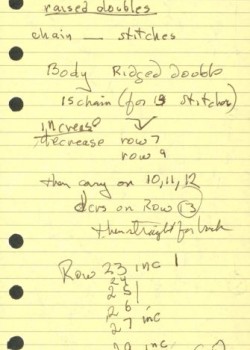 raised doubles
chain — stitches
Body Ridged double
15 chain (for 13 stitches)
increase
decrease row 7
row 9
then carry on 10, 11, 12
dcrs on Row 13
then straight for back
Row 23 inc 1
24
25
26
27 inc
inc